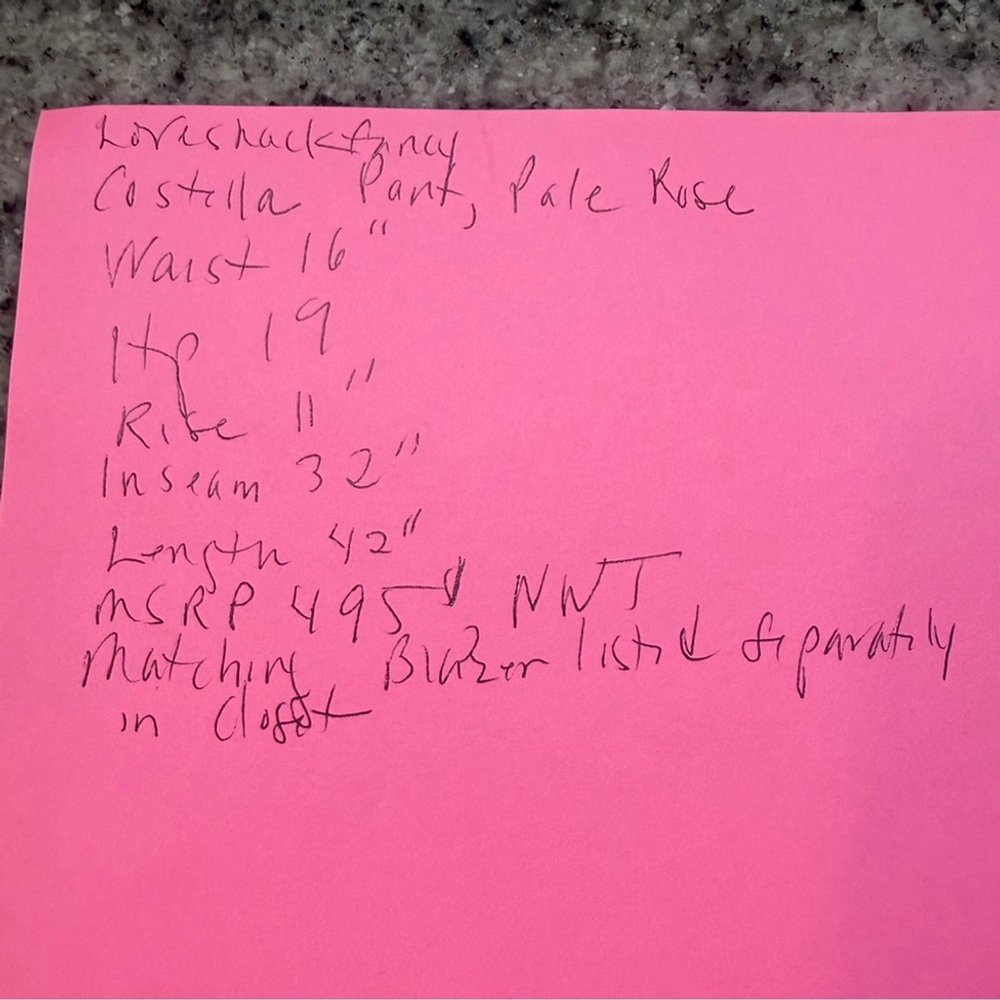 Loveshackfancy
Costella Pant, Pale Rose
Waist 16"
Hip 19
Rise 11"
Inseam 32"
Length 42"
MSRP 495 NWT
Matching Blazer listed separately
in closet